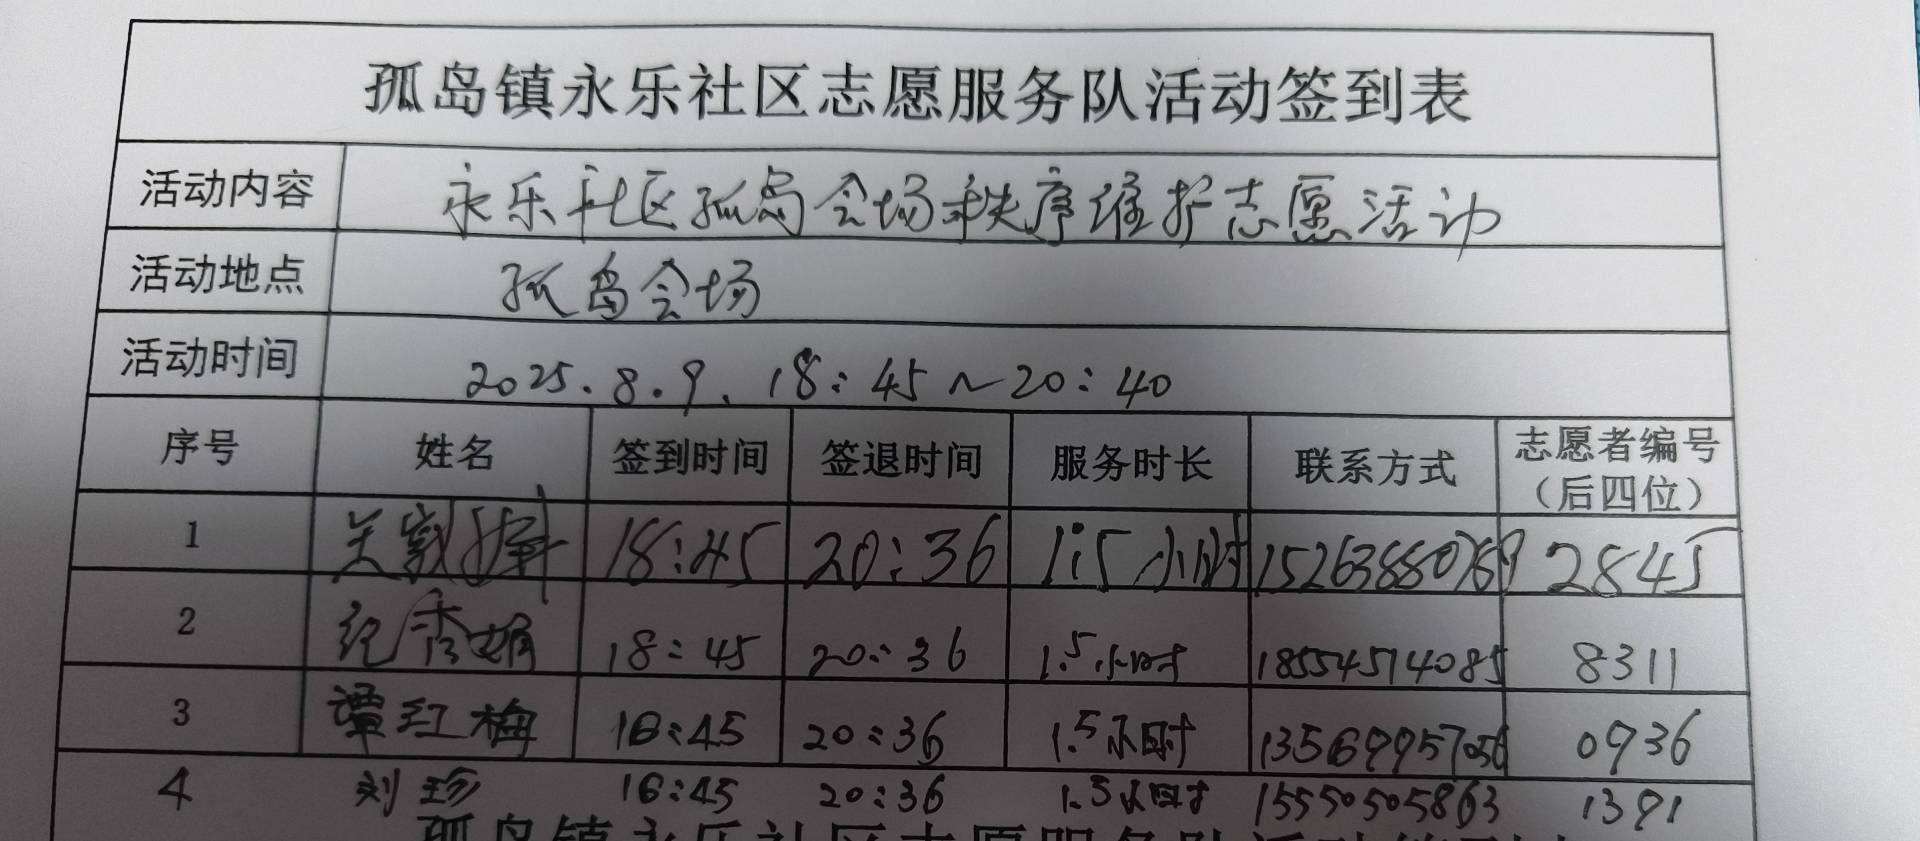 孤岛镇永乐社区志愿服务队活动签到表
活动内容 永乐社区孤岛会场秩序维护志愿活动
活动地点 孤岛会场
活动时间 2025.8.9. 18:45~20:40
序号 姓名 签到时间 签退时间 服务时长 联系方式 志愿者编号（后四位）
1 18:45 20:36 1.5小时 2845
2 纪秀娟 18:45 20:36 1.5小时 18554514085 8311
3 谭红梅 18:45 20:36 1.5小时 0936
4 刘珍 18:45 20:36 1.5小时 15550505863 1391
孤岛镇永乐社区志愿服务队活动签到